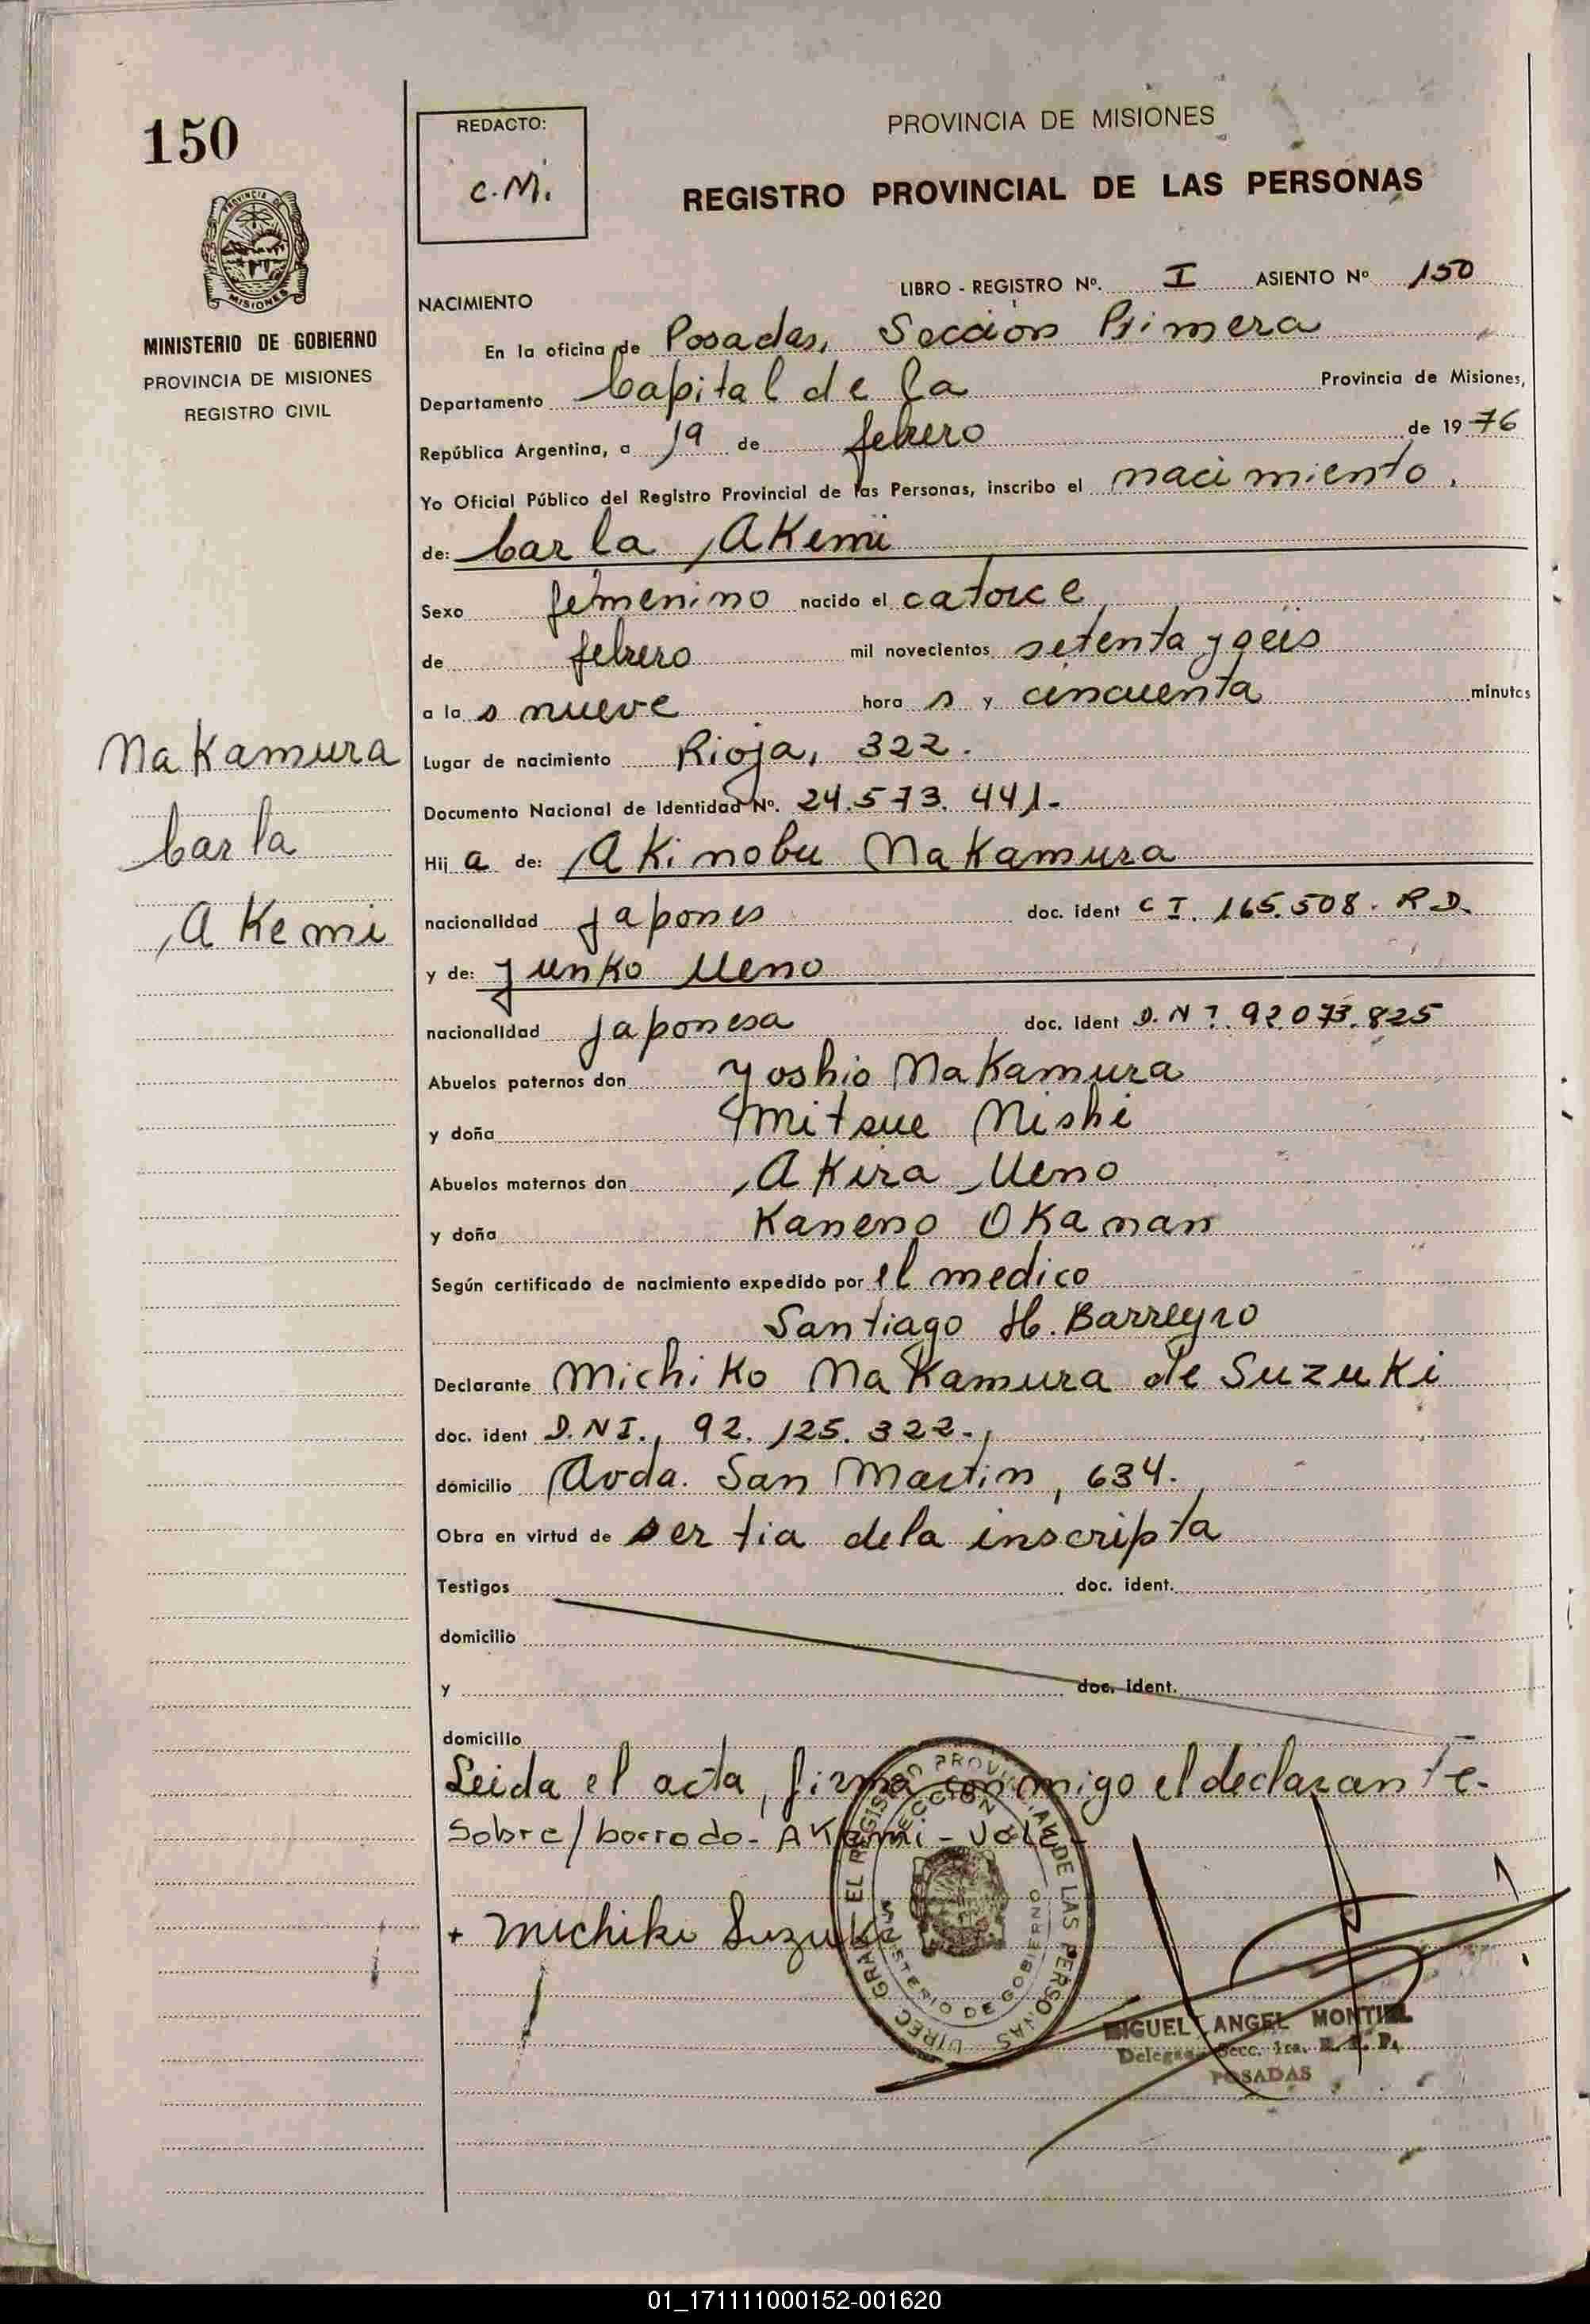 150
PROVINCIA DE MISIONES
MINISTERIO DE GOBIERNO
PROVINCIA DE MISIONES
REGISTRO CIVIL
Nakamura
Carla
Akemi
REDACTO:
C.M.
PROVINCIA DE MISIONES
REGISTRO PROVINCIAL DE LAS PERSONAS
LIBRO - REGISTRO Nº. I ASIENTO Nº 150
NACIMIENTO
En la oficina de Posadas, Sección Primera
Departamento Capital de la Provincia de Misiones,
República Argentina, a 19 de febrero de 1976
Yo Oficial Público del Registro Provincial de las Personas, inscribo el nacimiento
de: Carla Akemi
Sexo femenino nacido el catorce
de febrero mil novecientos setenta y seis
a las nueve horas y cincuenta minutos
Lugar de nacimiento Rioja, 322.
Documento Nacional de Identidad Nº. 24.573.441-
Hija de: Akinobu Nakamura
nacionalidad japones doc. ident C I. 165.508. R D.
y de: Junko Ueno
nacionalidad japonesa doc. ident D.N I. 92073.825
Abuelos paternos don Yoshio Nakamura
y doña Mitsue Nishi
Abuelos maternos don Akira Ueno
y doña Kaneno Okaman
Según certificado de nacimiento expedido por el medico
Santiago H. Barreyro
Declarante Michiko Nakamura de Suzuki
doc. ident D.N I., 92.125.322.,
domicilio Avda. San Martin, 634.
Obra en virtud de ser tia de la inscripta
Testigos doc. ident.
domicilio
y doc. ident.
domicilio
Leida el acta, firma conmigo el declarante.
Sobre/borrado - AKemi - Vale -
+ Michiko Suzuki
DIREC. GRAL. DEL REGISTRO PROVINCIAL DE LAS PERSONAS
SECCION 1ª
MINISTERIO DE GOBIERNO
MIGUEL ANGEL MONTIEL
Delegado Secc. 1ra. R. P. P.
POSADAS
01_171111000152-001620